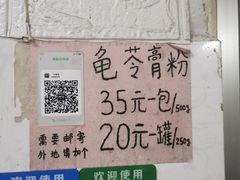 龟苓膏粉
35元一包/500g
20元一罐/250g
需要邮寄
外地请加个
欢迎使用
欢迎使用